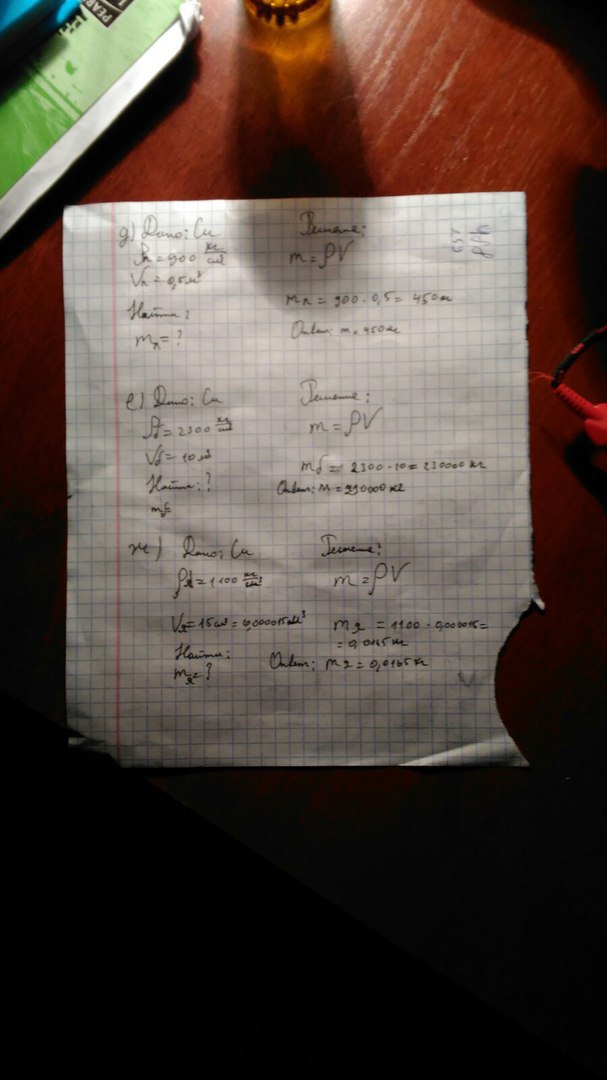 PEAR
д) Дано: Си
ρл = 900 кг/м³
Vл = 0,5 м³
Найти:
mл = ?
Решение:
m = ρV
mл = 900 · 0,5 = 450 кг
Ответ: m = 450 кг
е) Дано: Си
= 2300 кг/м³
Vб = 10 м³
Найти: ?
mб =
Решение:
m = ρV
mб = 2300 · 10 = 230000 кг
Ответ: m = 230000 кг
ж) Дано: Си
ρя = 1100 кг/м³
Vя = 15 см³ = 0,000015 м³
Найти:
mя = ?
Решение:
m = ρV
mя = 1100 · 0,000015 =
= 0,0165 кг
Ответ: mя = 0,0165 кг